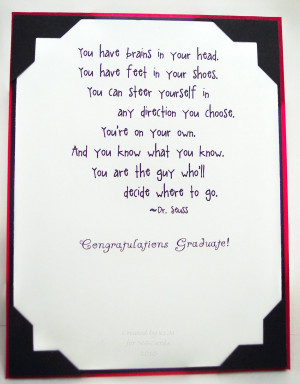 You have brains in your head.
You have feet in your shoes.
You can steer yourself in
any direction you choose.
You're on your own.
And you know what you know.
You are the guy who'll
decide where to go.
~Dr. Seuss
Congratulations Graduate!